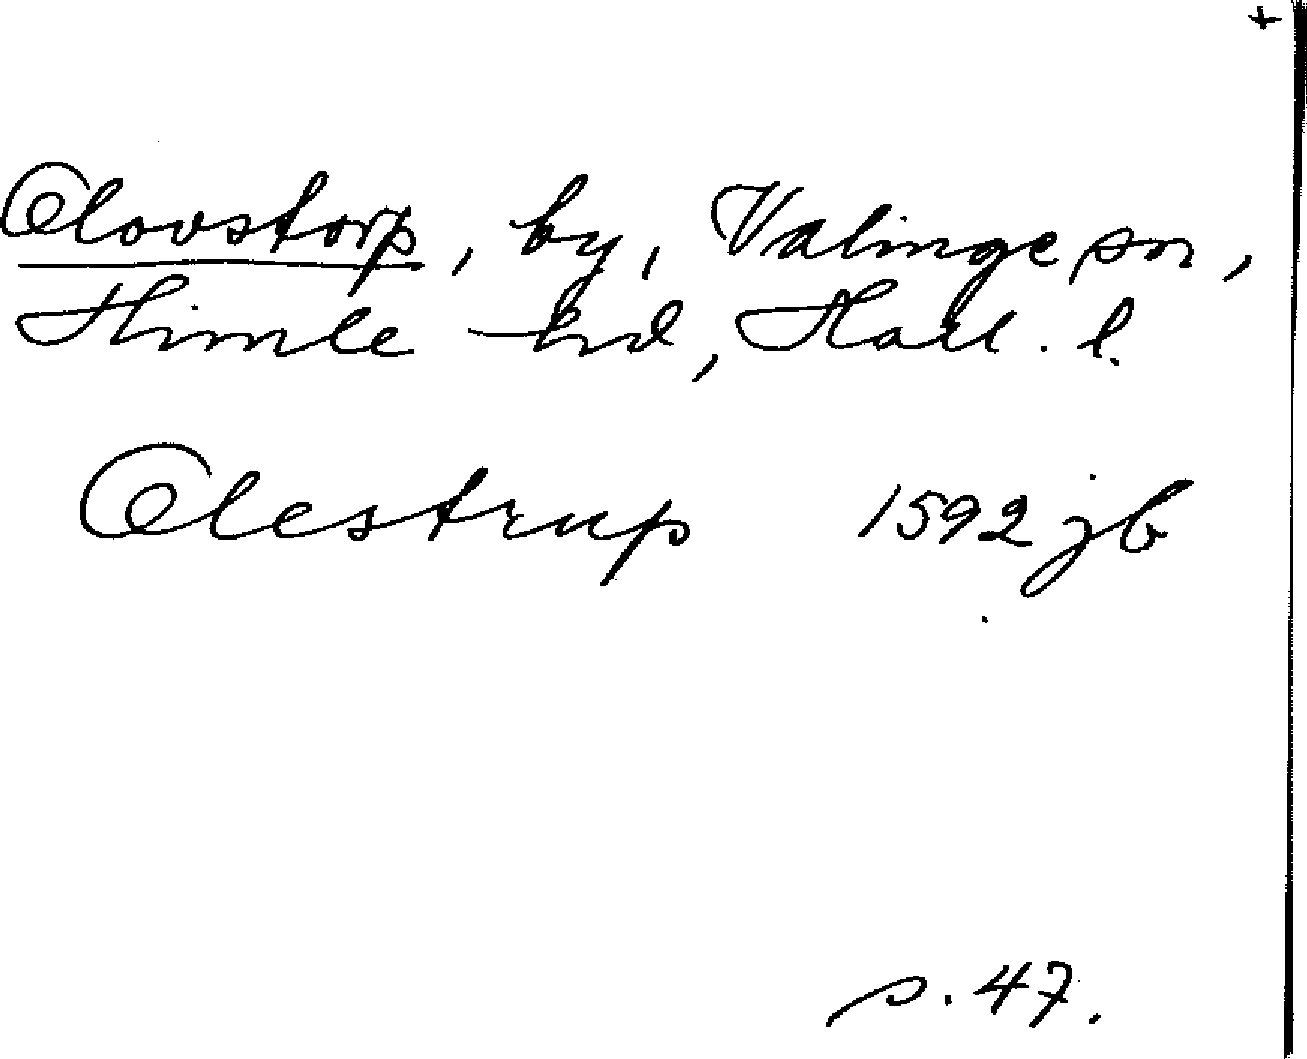 +
Olovstorp, by, Valinge sn,
Himle hd, Hall. l.
Olestrup 1592 jb
s. 47.